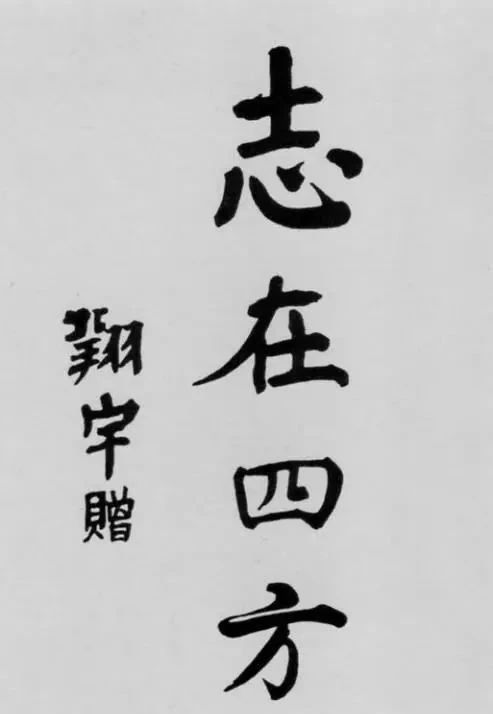 志在四方
翔宇贈